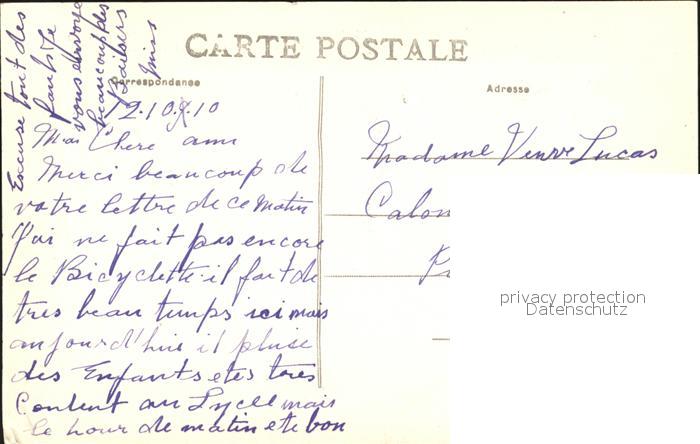 CARTE POSTALE
Correspondance
Adresse
12.10.10
Ma Chere ami
Merci beaucoup de
votre lettre de ce matin
J'ai ne fait pas encore
le Bicyclette. il fait de
tres beau temps ici mais
aujourd'hui il pluise
des Enfants etes tres
Content au Lycee mais
le hour de matin ete bon
Excuse tout des
faute
vous envoye
beaucoup des
Baisers
Miss
Madame Veuve Lucas
Calon
privacy protection
Datenschutz